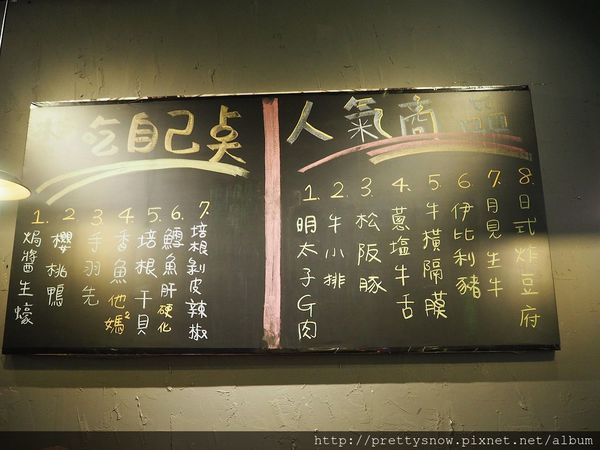 吃自己点
1. 焗醬生蠔
2. 櫻桃鴨
3. 手羽先
4. 香魚他媽²
5. 培根干貝
6. 鱈魚肝硬化
7. 培根剝皮辣椒
人氣商品
1. 明太子G肉
2. 牛小排
3. 松阪豚
4. 蔥塩牛舌
5. 牛橫隔膜
6. 伊比利豬
7. 月見生牛
8. 日式炸豆府
http://prettysnow.pixnet.net/album